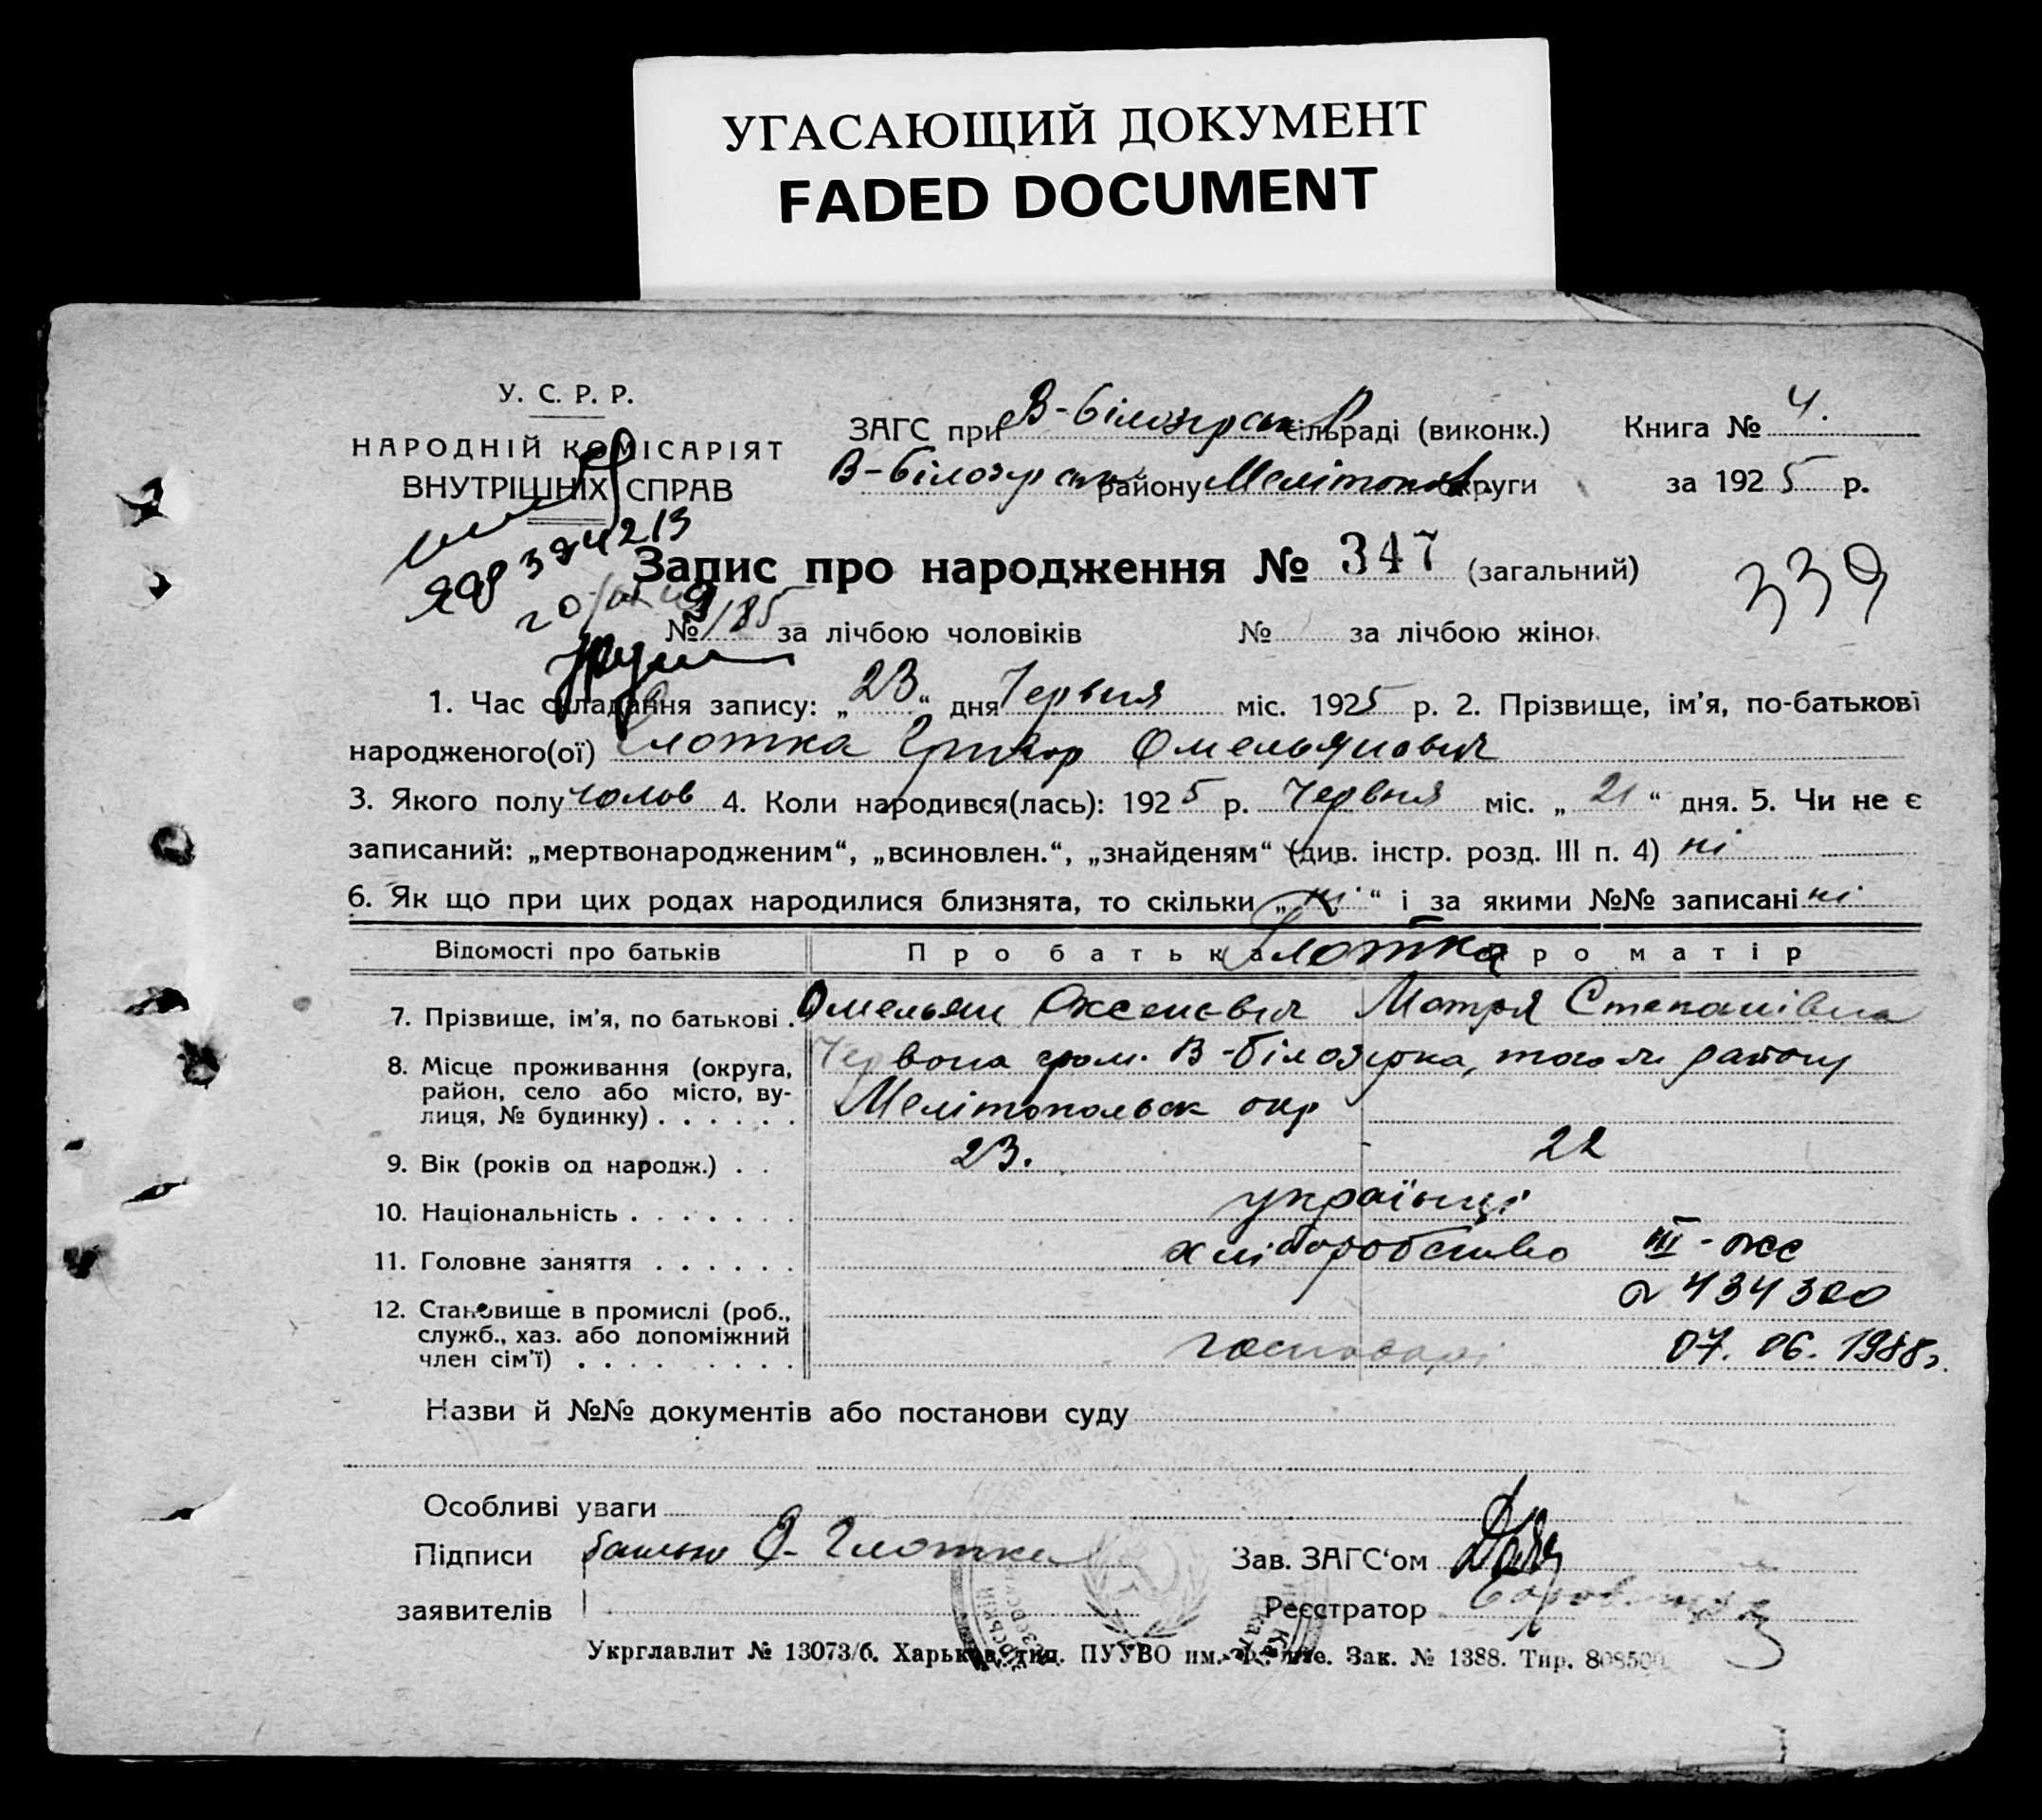 УГАСАЮЩИЙ ДОКУМЕНТ
FADED DOCUMENT
У. С. Р. Р.
НАРОДНІЙ КОМІСАРІЯТ
ВНУТРІШНІХ СПРАВ
ЗАГС при В-Білозірськ сільраді (виконк.)
В-Білозірськ району Мелітопол. округи
Книга № 4.
за 1925 р.
Запис про народження № 347 (загальний)
339
№ 185 за лічбою чоловіків № за лічбою жінок
1. Час складання запису: „23“ дня Червня міс. 1925 р. 2. Прізвище, ім'я, по-батькові
народженого(ої) Глотка Григор Омельянович
3. Якого полу чолов 4. Коли народився(лась): 1925 р. Червня міс. „21“ дня. 5. Чи не є
записаний: „мертвонародженим“, „всиновлен.“, „знайденям“ (див. інстр. розд. III п. 4) ні
6. Як що при цих родах народилися близнята, то скільки „ні“ і за якими №№ записані ні
Відомості про батьків Про батька Про матір
Глотка
7. Прізвище, ім'я, по батькові . Омельян Оксенович Мотря Степанівна
8. Місце проживання (округа, район, село або місто, вулиця, № будинку) . . . . . . Червона гром. В-Білозірка, того ж району
Мелітопольск окр
9. Вік (років од народж.) . . 23. 22
10. Національність . . . . . . . українці
11. Головне заняття . . . . . . хліборобство III-жс
434300
12. Становище в промислі (роб., служб., хаз. або допоміжний член сім'ї) . . . . . . . . . господарі 07. 06. 1988
Назви й №№ документів або постанови суду
Особливі уваги
Підписи батько О. Глотка Зав. ЗАГС'ом
заявителів Реєстратор
Укрглавлит № 13073/б. Харьков, тип. ПУУВО им. Фрунзе. Зак. № 1388. Тир. 808500